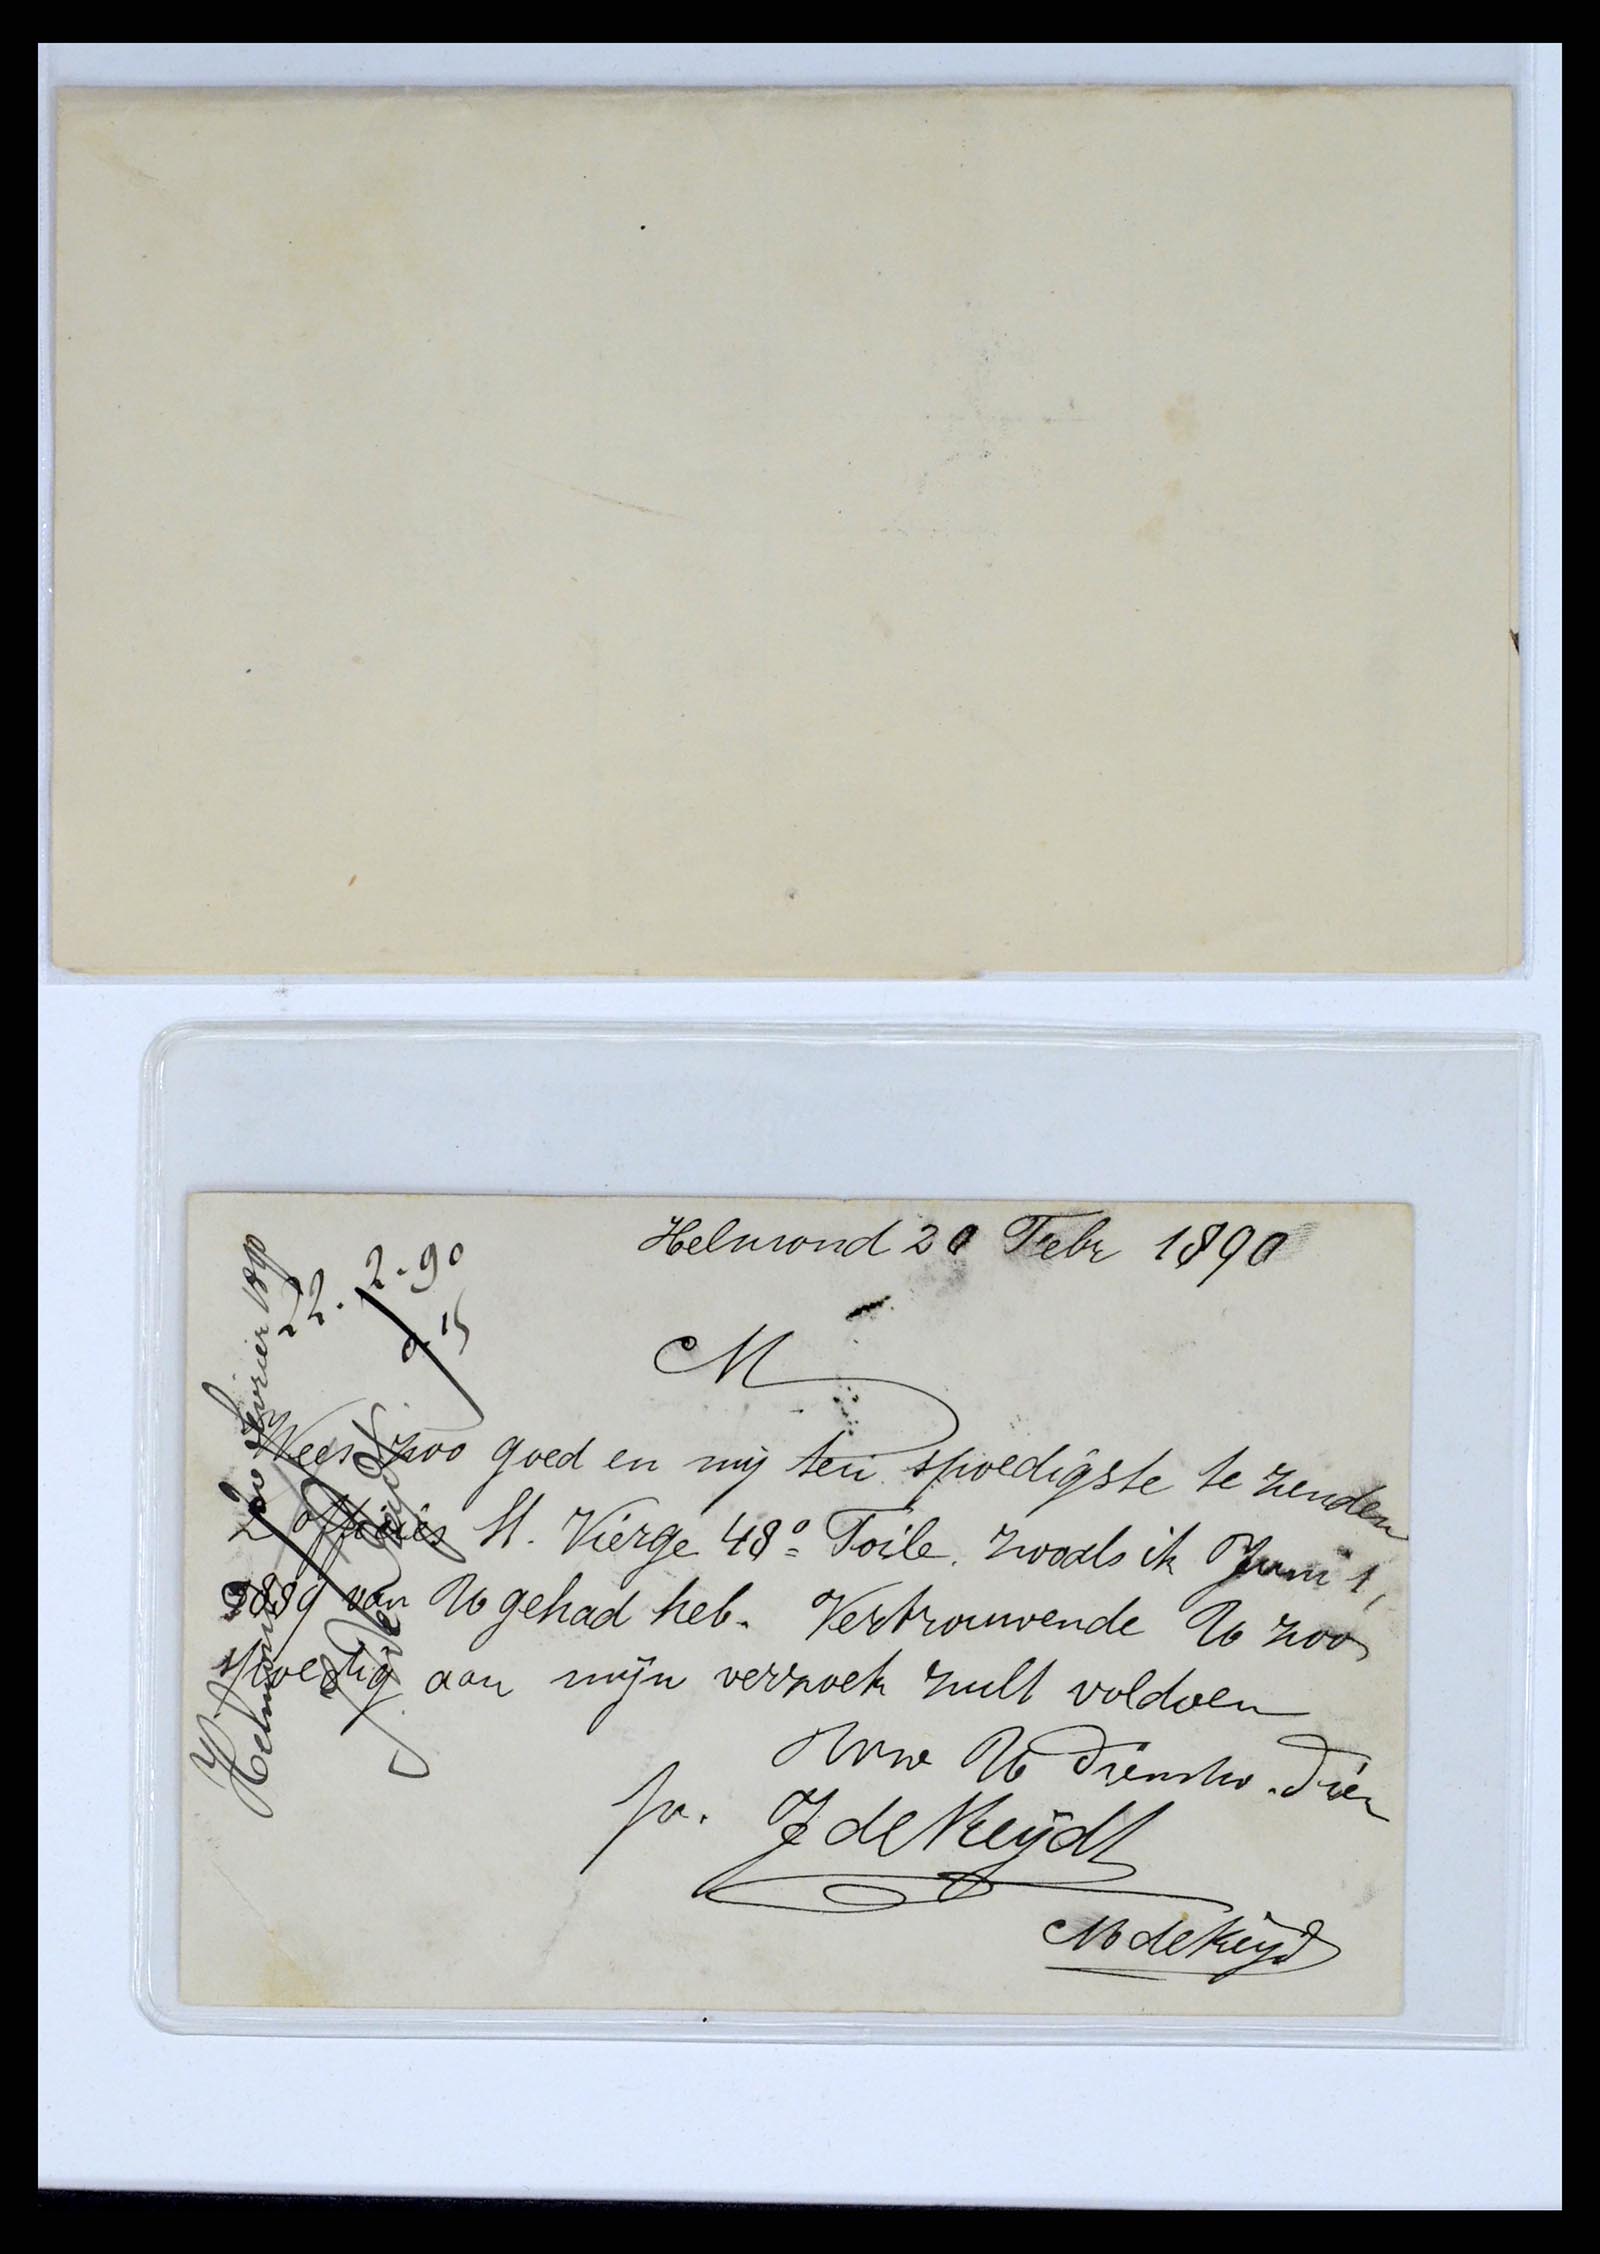 Helmond 20 Febr 1890
M
Wees zoo goed en mij ten spoedigste te zenden
offices St. Vierge 48° Toile. zooals ik Juni 1,
1889 van U gehad heb. Vertrouwende U zoo
spoedig aan mijn verzoek zult voldoen
U Dienstw. Dien
J de Keijdt
M de Keijd
22. 2-90
Helmond 20 fevrier 1890